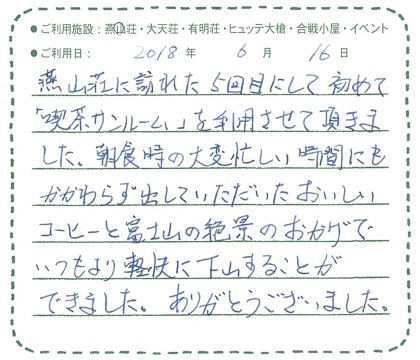 ●ご利用施設：燕山荘・大天荘・有明荘・ヒュッテ大槍・合戦小屋・イベント
●ご利用日： 2018 年 6 月 16 日
燕山荘に訪れた5回目にして初めて
「喫茶サンルーム」を利用させて頂きま
した。朝食時の大変忙しい時間にも
かかわらず出していただいたおいしい
コーヒーと富士山の絶景のおかげで
いつもより軽快に下山することが
できました。ありがとうございました。